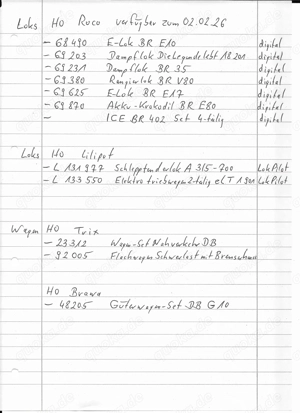 Loks H0 Roco verfügbar zum 02.02.26
- 68490 E-Lok BR E10 digital
- 69203 Dampflok Die Legende lebt 18201 digital
- 69231 Dampflok BR 35 digital
- 69380 Rangierlok BR V80 digital
- 69625 E-Lok BR E17 digital
- 69870 Akku-Krokodil BR E80 digital
- ICE BR 402 Set 4-talig digital
Loks H0 Liliput
- L 131977 Schlepptenderlok A 3/5-700 LokPilot
- L 133550 Elektrotriebwagen 2-talig elT 1901 LokPilot
Wagen H0 Trix
- 23312 Wagen-Set Nahverkehr DB
- 92005 Flachwagen Schwerlast mit Bremserhaus
H0 Brawa
- 48205 Güterwagen-Set DB G10